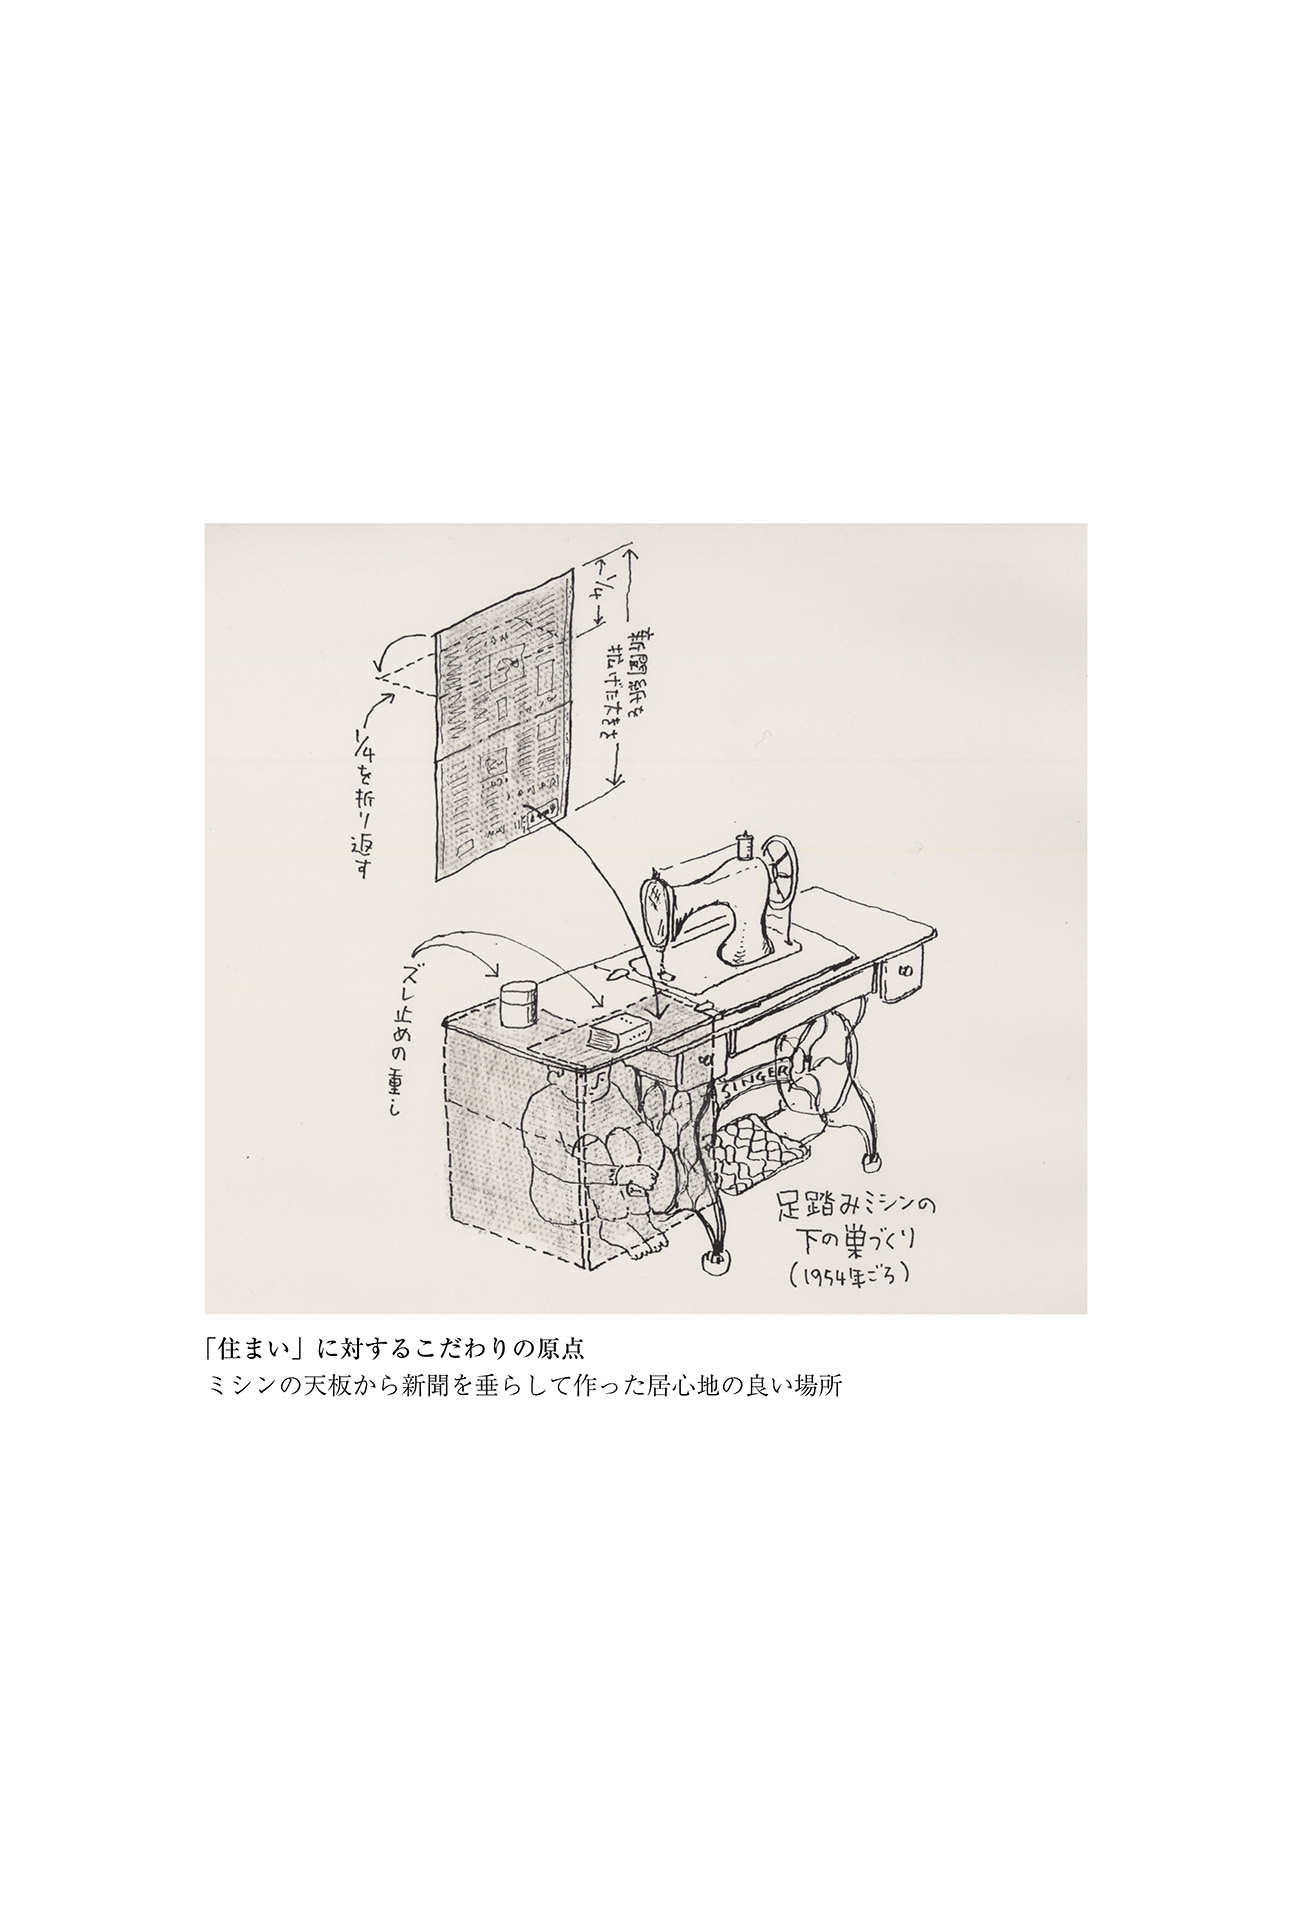 1/4
新聞紙を
拡げた大きさ
1/4を折り返す
ズレ止めの重し
SINGER
足踏みミシンの
下の巣づくり
(1954年ごろ)
「住まい」に対するこだわりの原点
ミシンの天板から新聞を垂らして作った居心地の良い場所